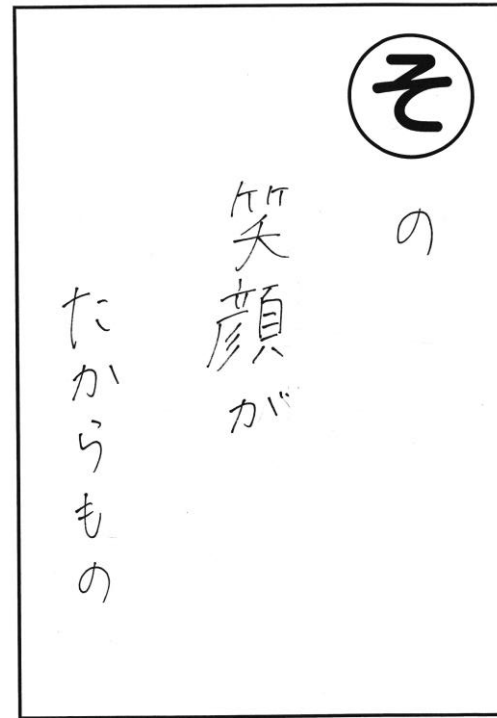 その
笑顔が
たからもの